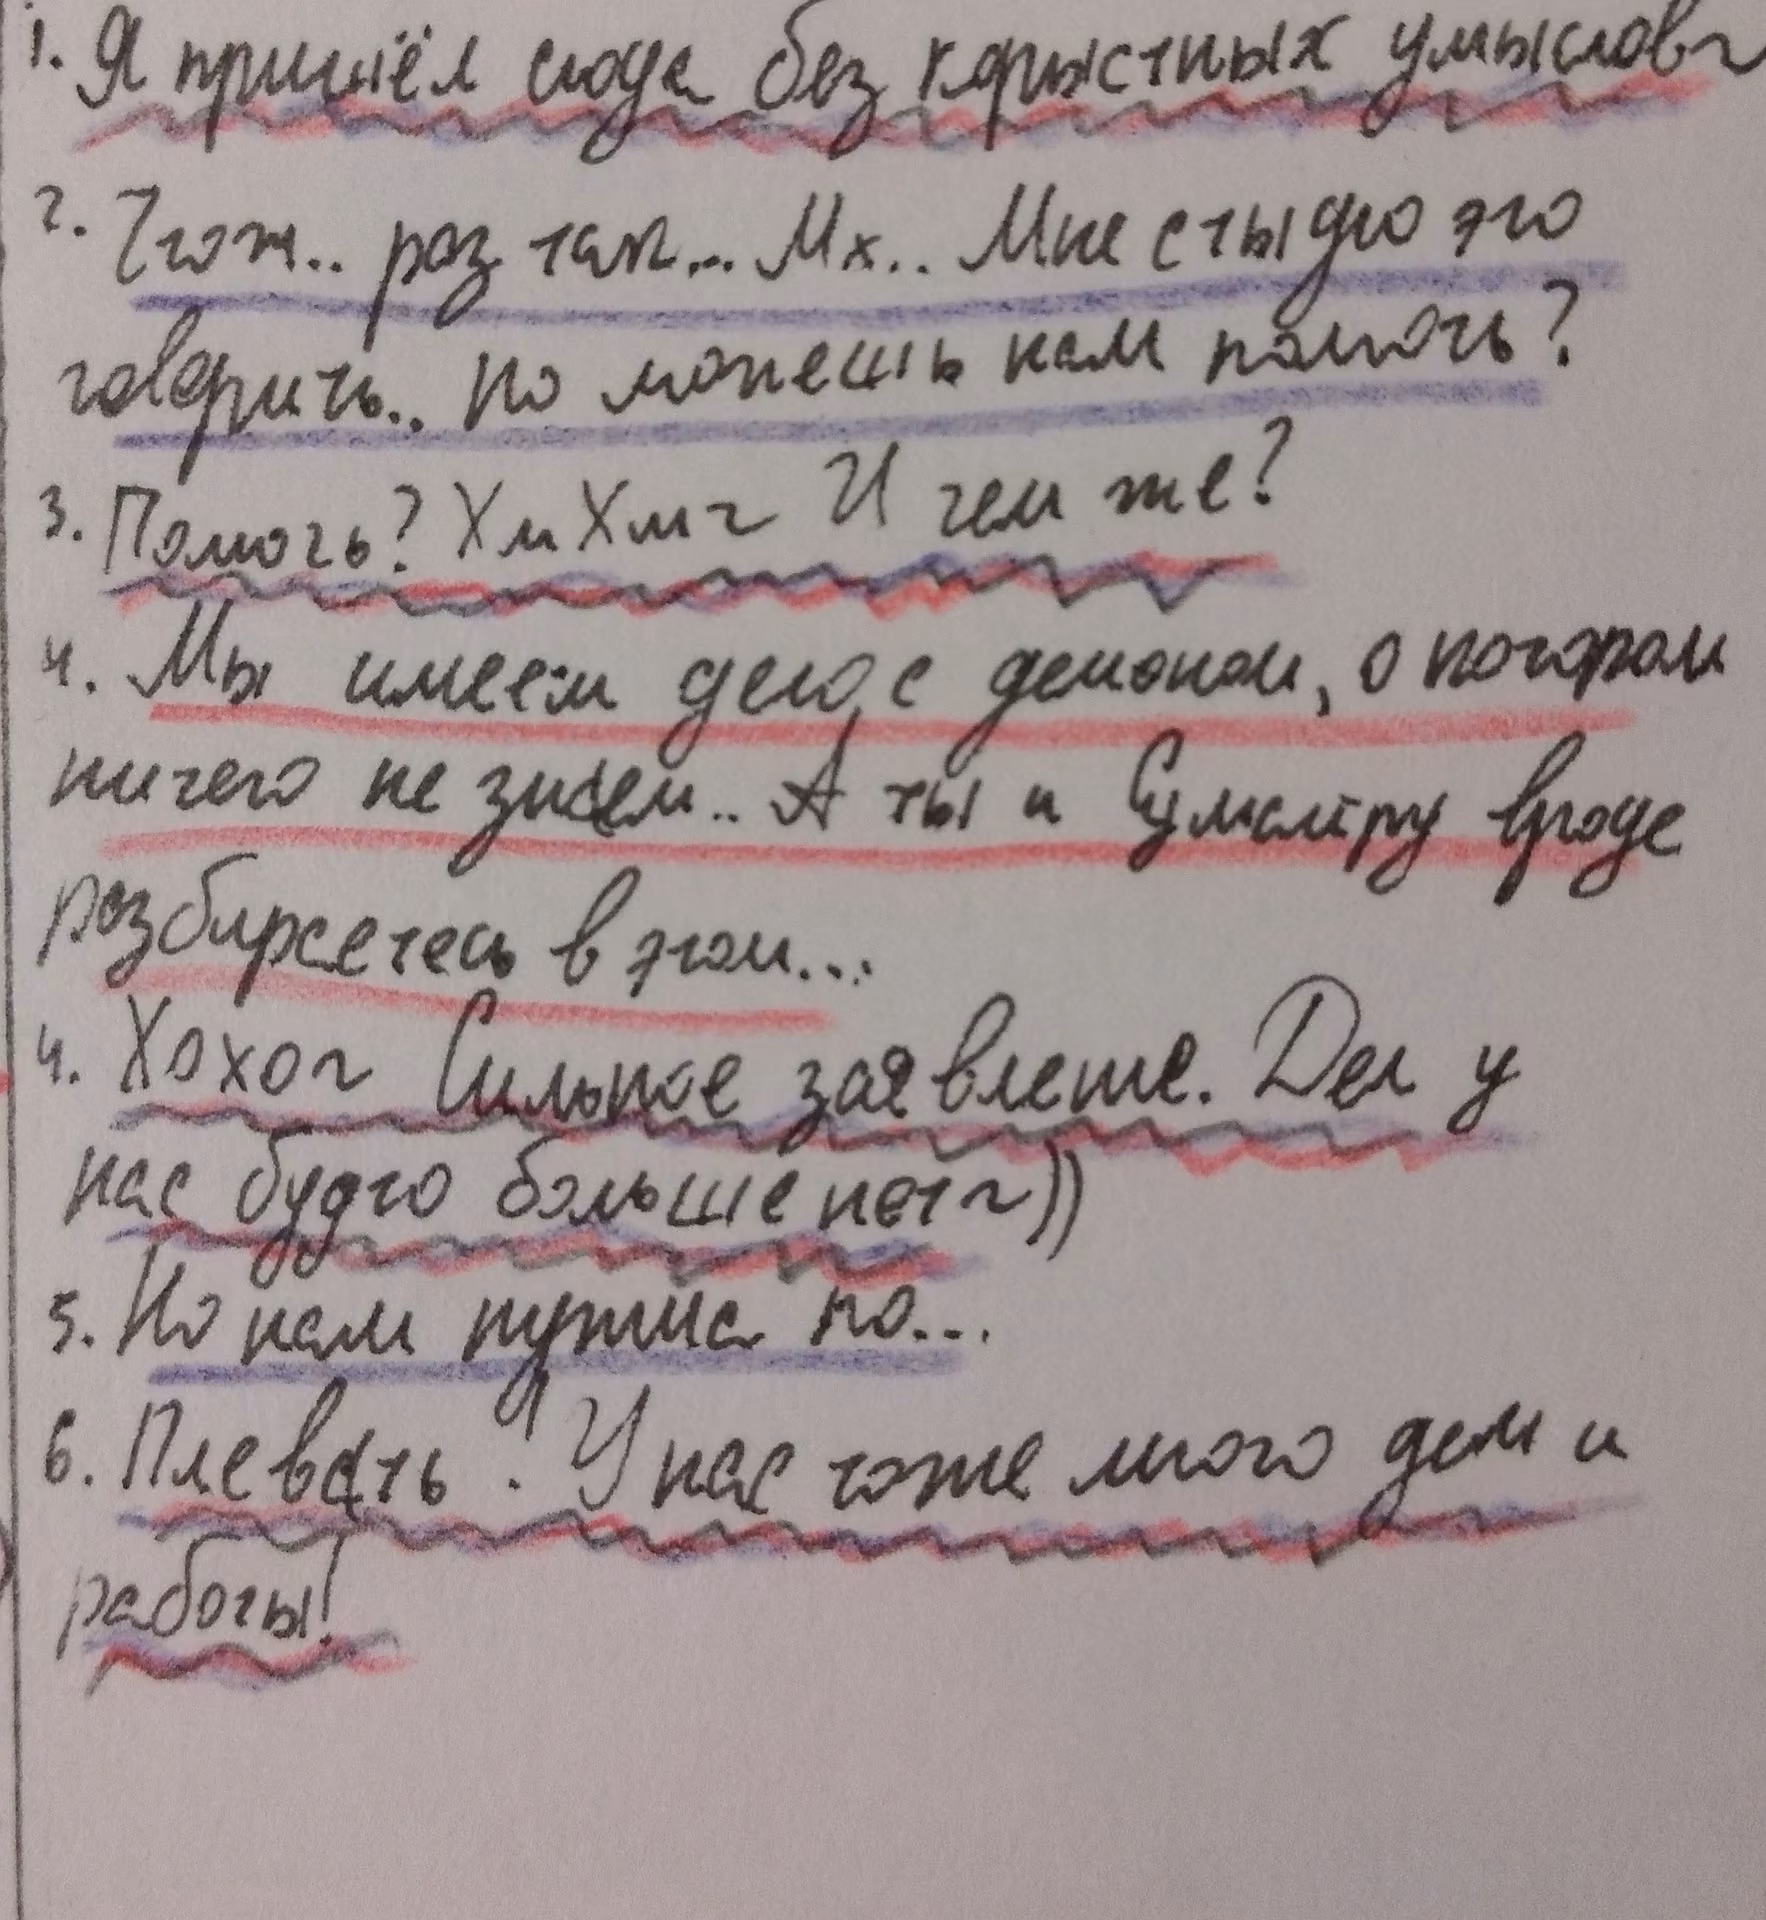 1. Я пришёл сюда без корыстных умыслов~
2. Чтож.. раз так... Мх.. Мне стыдно это
говорить.. Но можешь нам помочь?
3. Помочь? Хм Хм~ И чем же?
4. Мы имеем дело с демоном, о котором
ничего не знаем.. А ты и Сумайру вроде
разбираетесь в этом...
4. Хохо~ Сильное заявление. Дел у
нас будто больше нет~))
5. Но нам нужна по...
6. Плевать! У нас тоже много дел и
работы!